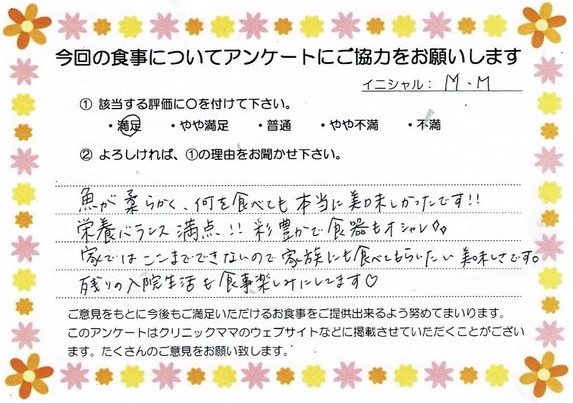 今回の食事についてアンケートにご協力をお願いします
イニシャル： M.M
① 該当する評価に○を付けて下さい。
・満足 ・やや満足 ・普通 ・やや不満 ・不満
② よろしければ、①の理由をお聞かせ下さい。
魚が柔らかく、何を食べても本当に美味しかったです!!
栄養バランス満点!! 彩豊かで食器もオシャレ
家ではここまでできないので家族にも食べてもらいたい美味しさです。
残りの入院生活も食事楽しみにしてます♡
ご意見をもとに今後もご満足いただけるお食事をご提供出来るよう努めてまいります。
このアンケートはクリニックママのウェブサイトなどに掲載させていただくことがござい
ます。たくさんのご意見をお願い致します。